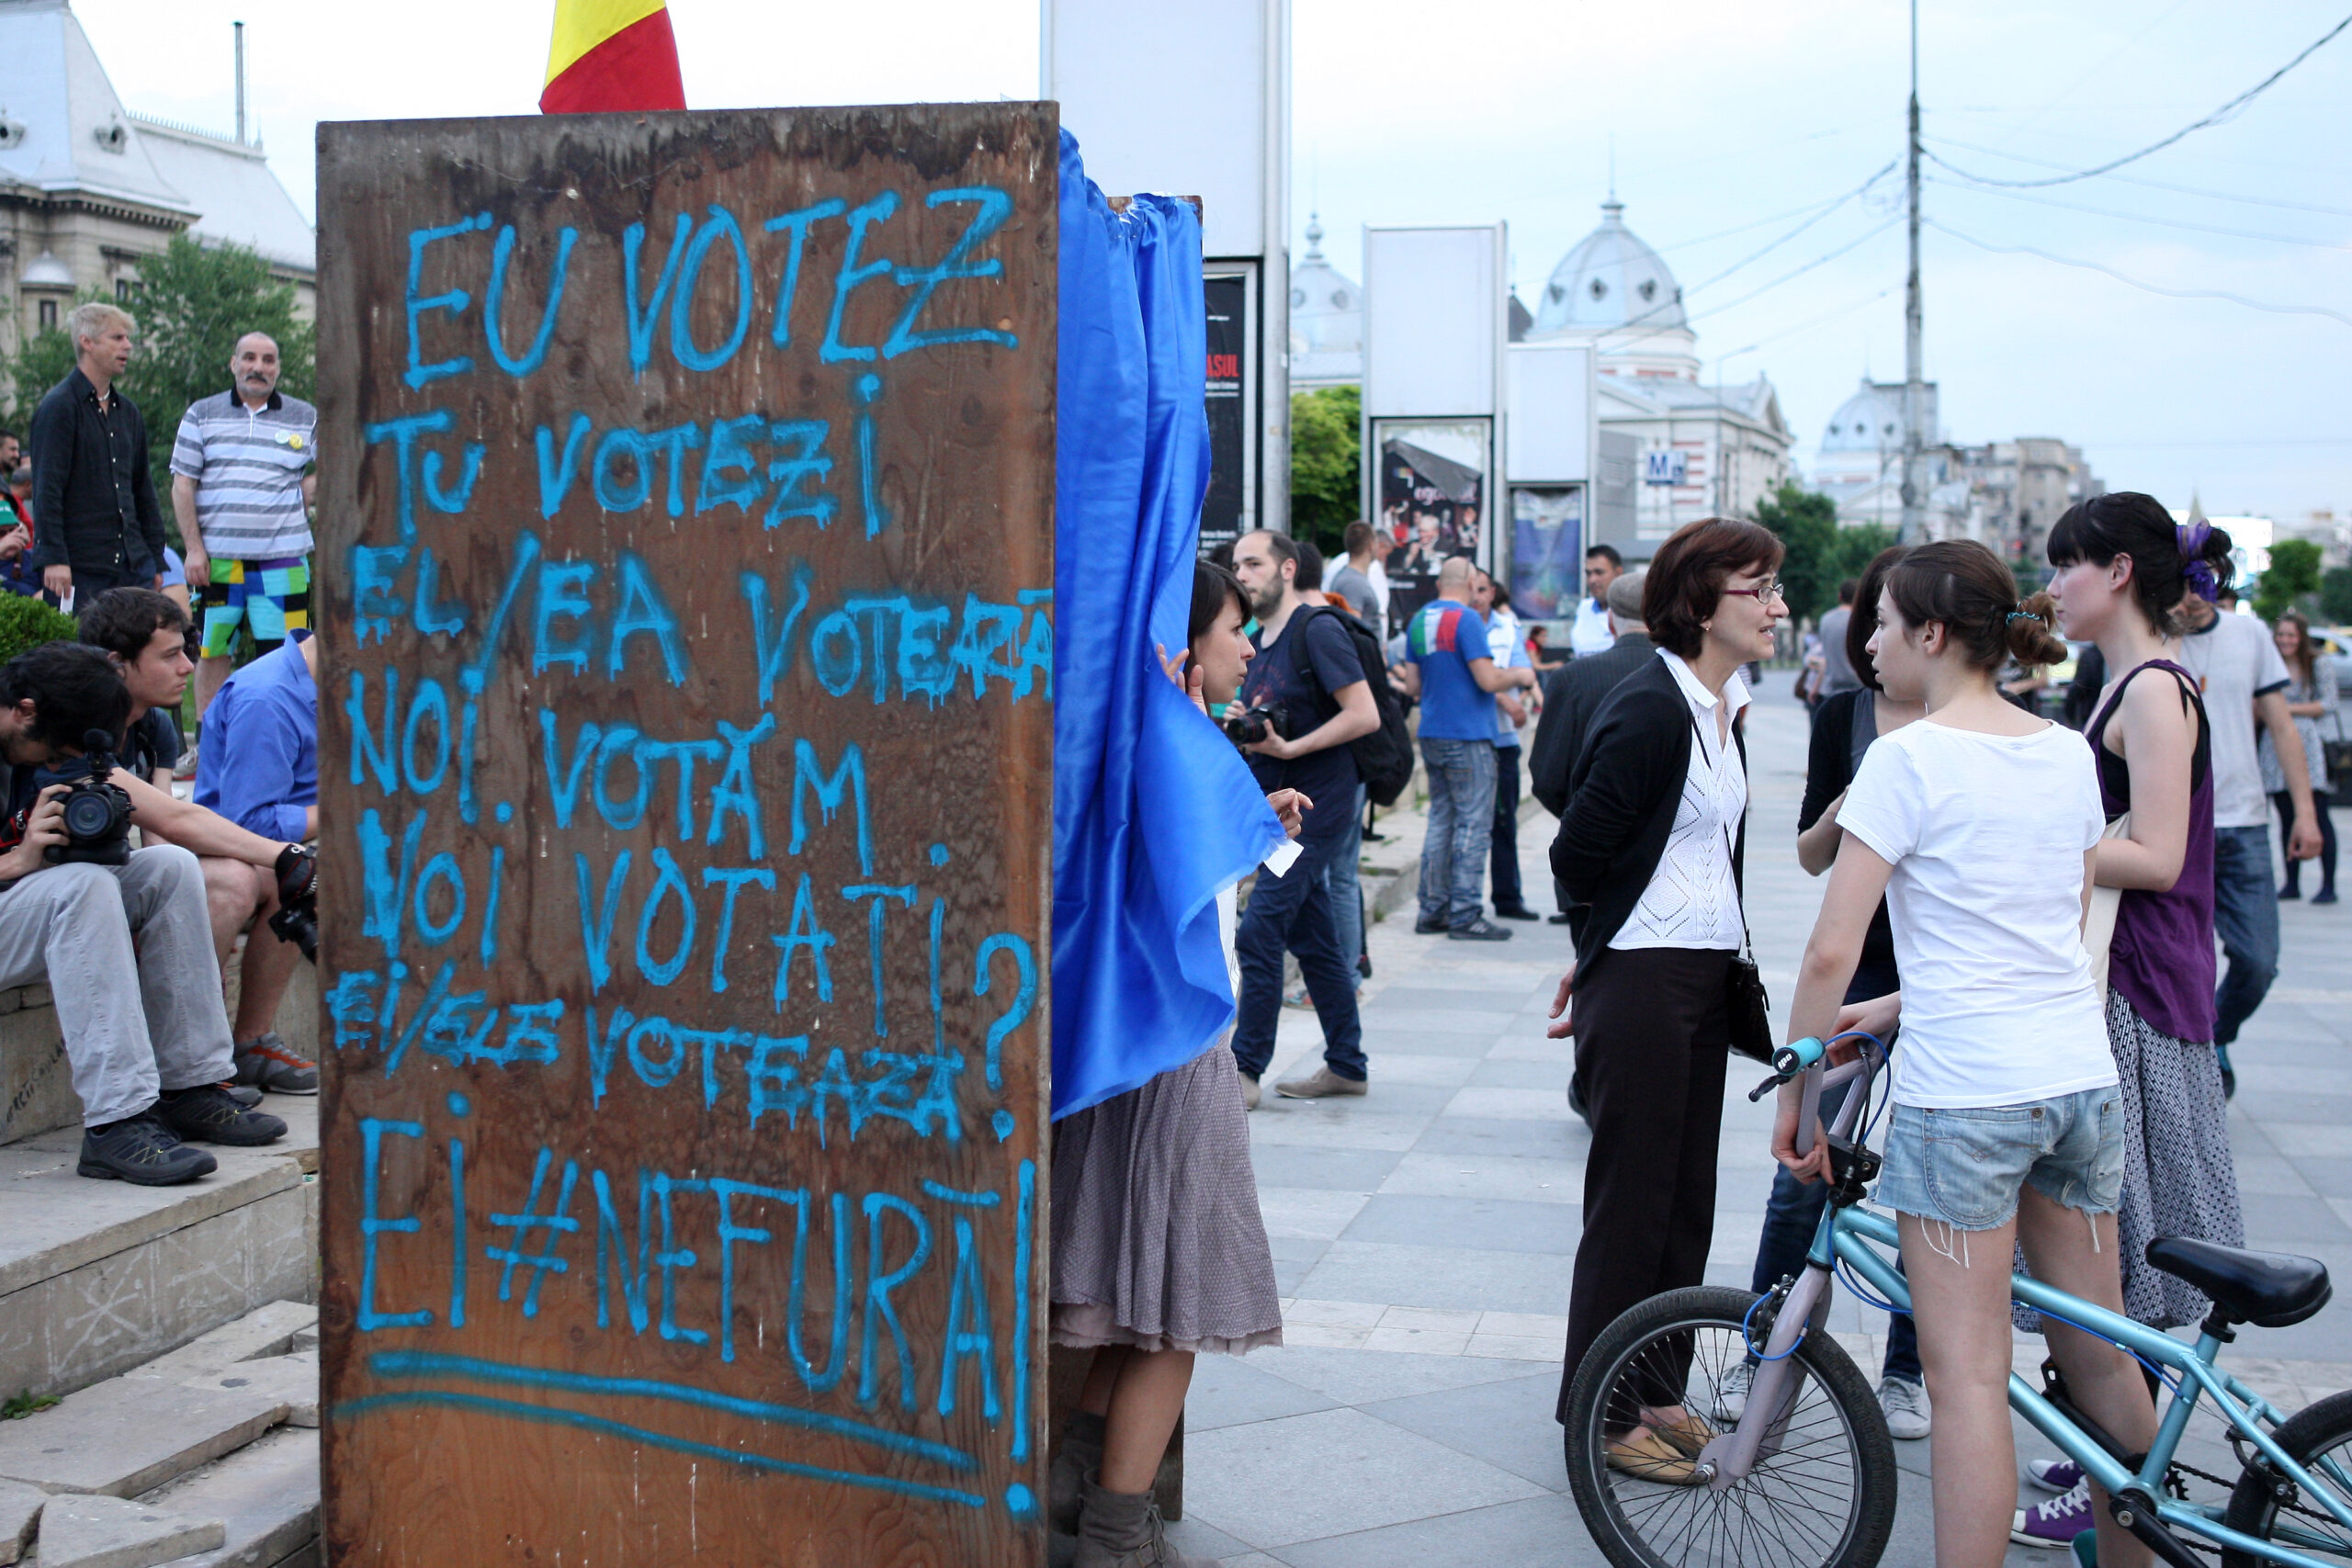 EU VOTEZ
TU VOTEZI
EL/EA VOTEAZĂ
NOI. VOTĂM.
VOI VOTAȚI
EI/ELE VOTEAZĂ?
EI #NEFURĂ!
M